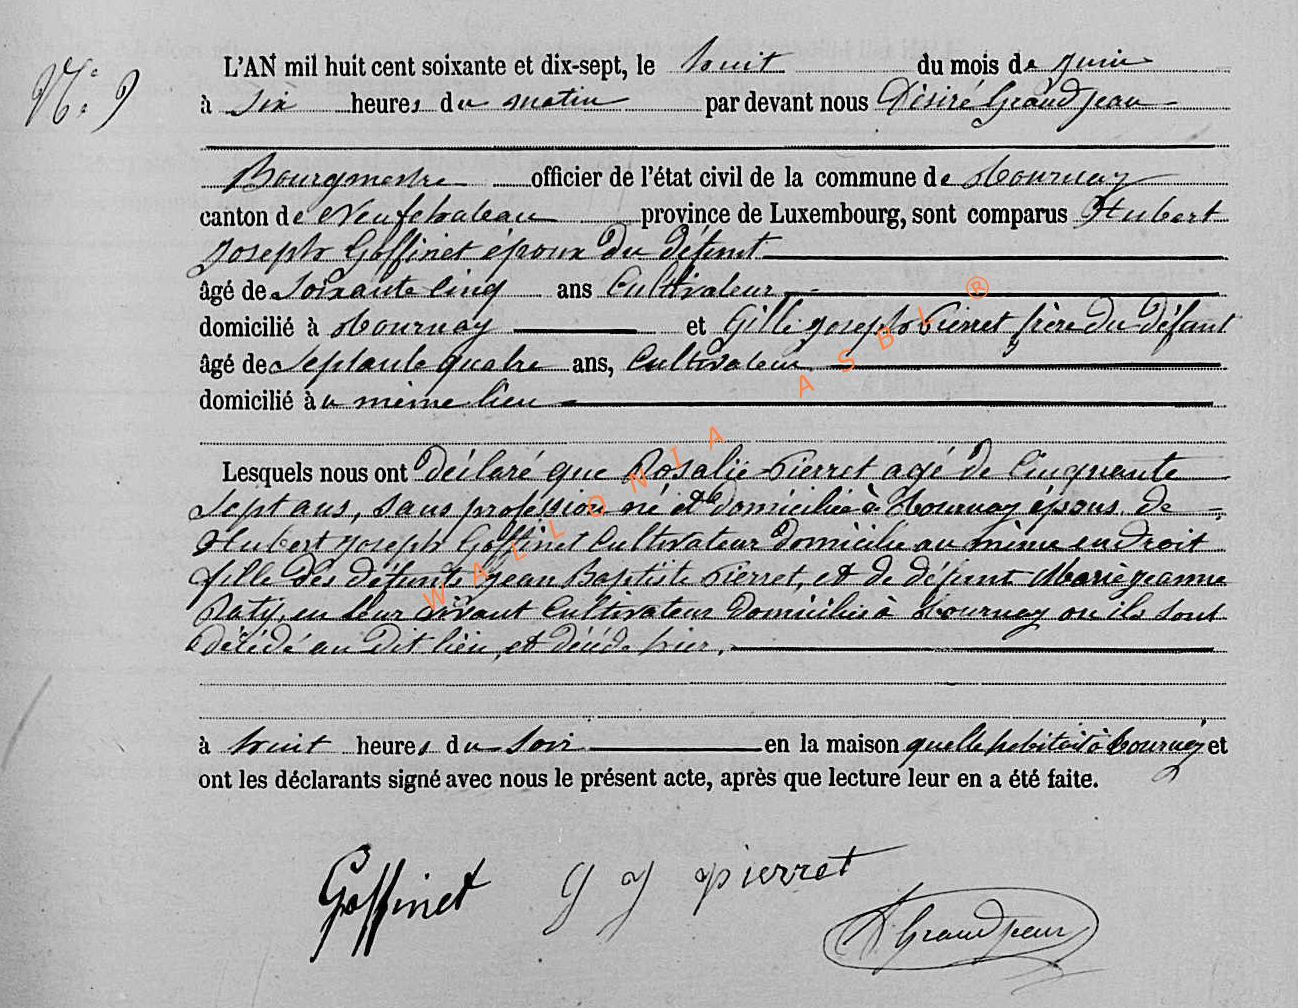 N° 9
L'AN mil huit cent soixante et dix-sept, le huit du mois de juin
à six heures du matin par devant nous Désiré Grandjean
Bourgmestre officier de l'état civil de la commune de Tournay
canton de Neufchateau province de Luxembourg, sont comparus Hubert
Joseph Goffinet époux du défunt
âgé de Soixante cinq ans Cultivateur
domicilié à Tournay et Gille joseph Pierret frère du défunt
âgé de Septante quatre ans, Cultivateur
domicilié àu même lieu
Lesquels nous ont déclaré que Rosalie Pierret agé de Cinquante
Sept ans, sans profession né et domiciliée à Tournay épous de
Hubert joseph Goffinet Cultivateur domicilié au même endroit
fille des défunts jean Baptiste Pierret, et de défunt Marie jeanne
en leur vivant Cultivateur domicilié à Tournay ou ils sont
décédé au dit lieu, et décédé hier,
à huit heures du soir en la maison quelle habitait à Tournay et
ont les déclarants signé avec nous le présent acte, après que lecture leur en a été faite.
Goffinet G J pierret
D Grandjean
WALLONIA ASBL ®